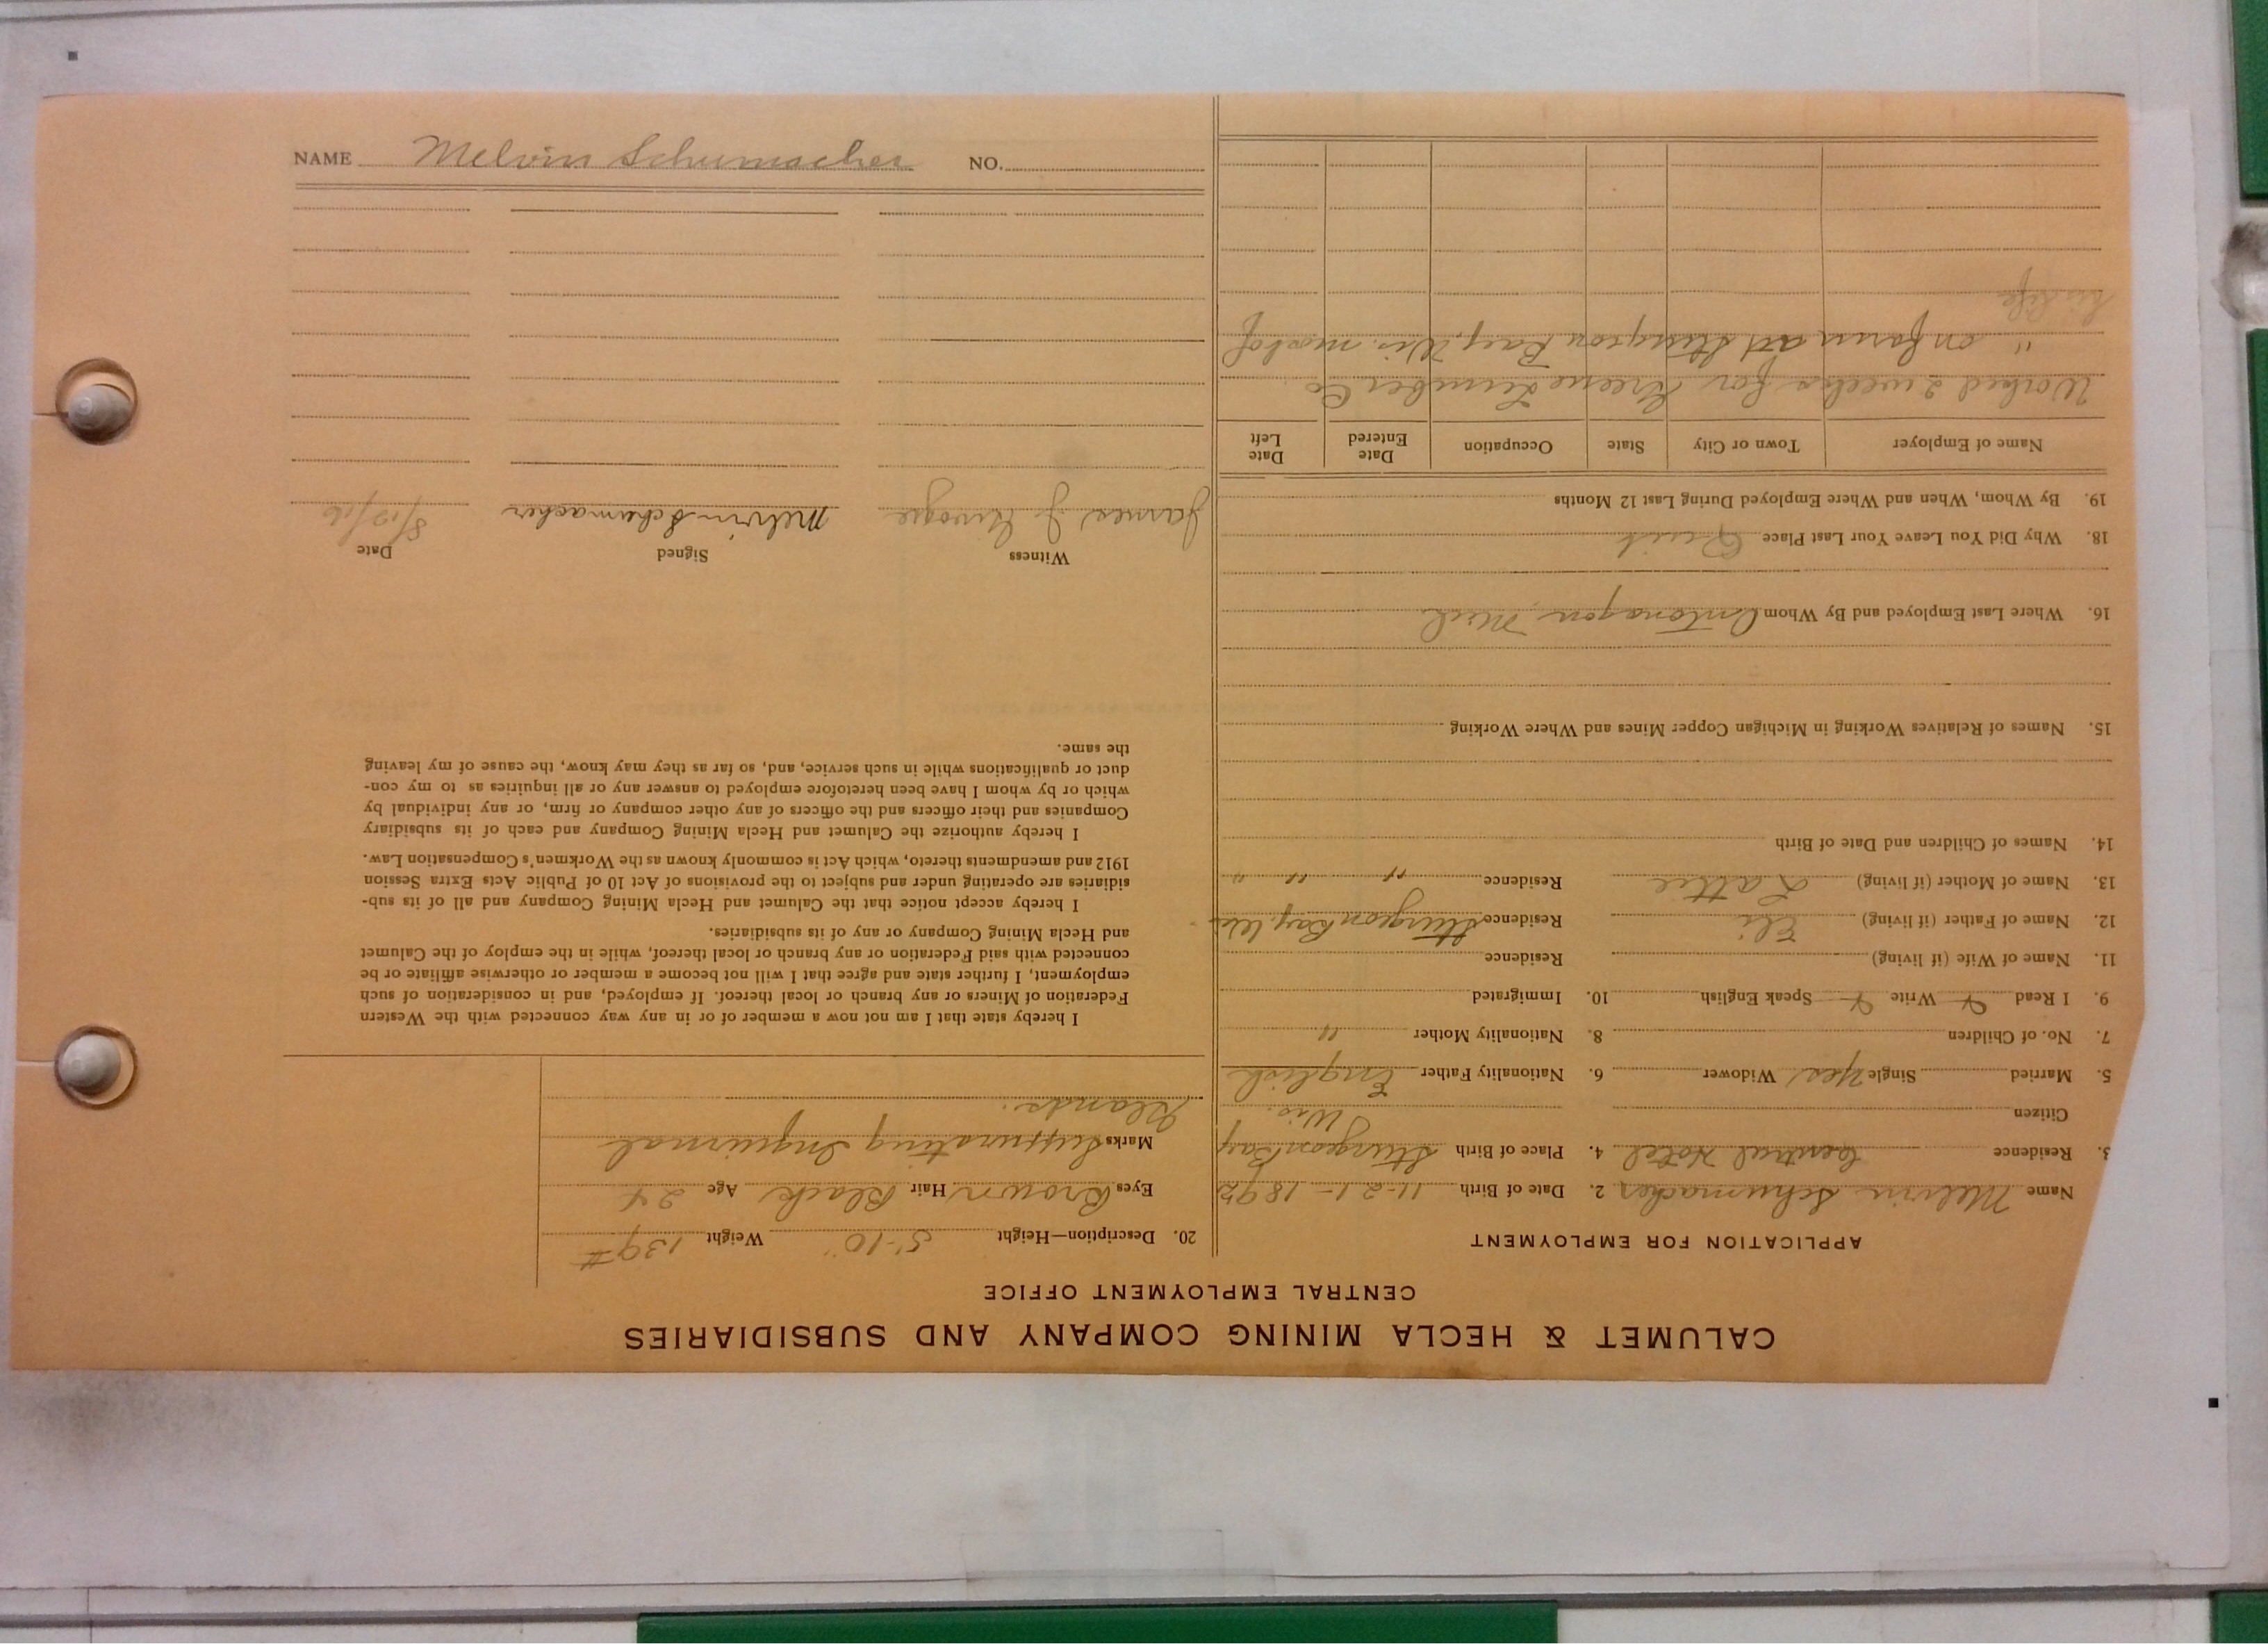 CALUMET & HECLA MINING COMPANY AND SUBSIDIARIES
CENTRAL EMPLOYMENT OFFICE
APPLICATION FOR EMPLOYMENT
Name Melvin Schumacher 2. Date of Birth 11-21-1892
3. Residence Central Hotel 4. Place of Birth Sturgeon Bay
Citizen Wis.
5. Married Single Yes Widower 6. Nationality Father English
7. No. of Children 8. Nationality Mother "
9. I Read Write Speak English 10. Immigrated
11. Name of Wife (if living) Residence
12. Name of Father (if living) Eli Residence Sturgeon Bay, Wis
13. Name of Mother (if living) Lattie Residence " " "
14. Names of Children and Date of Birth
15. Names of Relatives Working in Michigan Copper Mines and Where Working
16. Where Last Employed and By Whom Ontonagon, Mich
18. Why Did You Leave Your Last Place Quit
19. By Whom, When and Where Employed During Last 12 Months
Name of Employer Town or City State Occupation Date Entered Date Left
Worked 2 weeks for Greene Lumber Co
" on farm at Sturgeon Bay, Wis. most of
his life
20. Description—Height 5'-10" Weight 139#
Eyes Brown Hair Black Age 24
Marks Suppurating Inguinal
Glands.
I hereby state that I am not now a member of or in any way connected with the Western
Federation of Miners or any branch or local thereof. If employed, and in consideration of such
employment, I further state and agree that I will not become a member or otherwise affiliate or be
connected with said Federation or any branch or local thereof, while in the employ of the Calumet
and Hecla Mining Company or any of its subsidiaries.
I hereby accept notice that the Calumet and Hecla Mining Company and all of its sub-
sidiaries are operating under and subject to the provisions of Act 10 of Public Acts Extra Session
1912 and amendments thereto, which Act is commonly known as the Workmen's Compensation Law.
I hereby authorize the Calumet and Hecla Mining Company and each of its subsidiary
Companies and their officers and the officers of any other company or firm, or any individual by
which or by whom I have been heretofore employed to answer any or all inquiries as to my con-
duct or qualifications while in such service, and, so far as they may know, the cause of my leaving
the same.
Witness Signed Date
James J. Melvin Schumacher
NAME Melvin Schumacher NO.